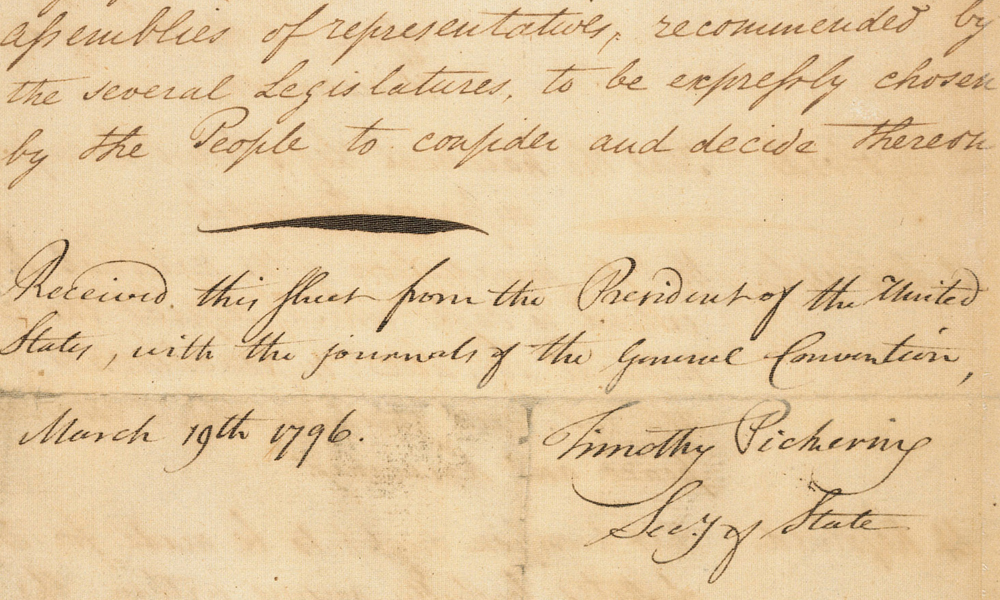 assemblies of representatives, recommended by
the several Legislatures, to be expressly chosen
by the People to consider and decide thereon
Received this sheet from the President of the United
States, with the journals of the General Convention,
March 19th 1796.
Timothy Pickering
Secy of State